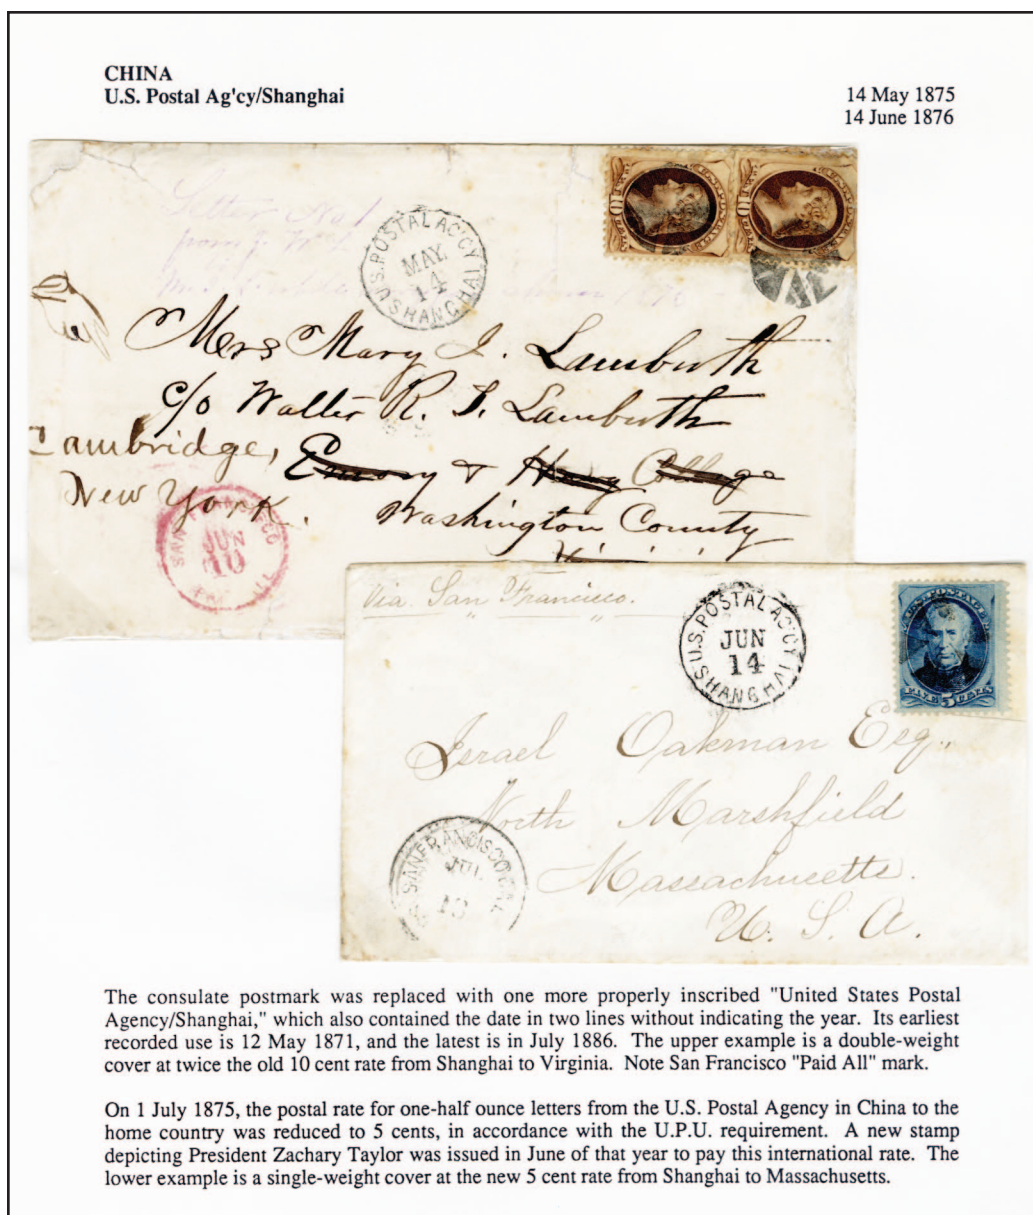 CHINA
U.S. Postal Ag'cy/Shanghai
14 May 1875
14 June 1876
Letter No 1
from J. W.
U.S. POSTAL AG'CY
MAY
14
SHANGHAI
Mrs Mary I. Lambuth
c/o Walter R. S. Lambuth
Cambridge,
Emory & Henry College
New York.
Washington County
SAN FRANCISCO
JUN
10
PAID ALL
Via San Francisco.
U.S. POSTAL AG'CY
JUN
14
SHANGHAI
U.S. POSTAGE
FIVE 5 CENTS
Israel Oakman Esq.,
North Marshfield
Massachusetts.
U. S. A.
SAN FRANCISCO CAL.
JUL
13
The consulate postmark was replaced with one more properly inscribed "United States Postal
Agency/Shanghai," which also contained the date in two lines without indicating the year. Its earliest
recorded use is 12 May 1871, and the latest is in July 1886. The upper example is a double-weight
cover at twice the old 10 cent rate from Shanghai to Virginia. Note San Francisco "Paid All" mark.
On 1 July 1875, the postal rate for one-half ounce letters from the U.S. Postal Agency in China to the
home country was reduced to 5 cents, in accordance with the U.P.U. requirement. A new stamp
depicting President Zachary Taylor was issued in June of that year to pay this international rate. The
lower example is a single-weight cover at the new 5 cent rate from Shanghai to Massachusetts.